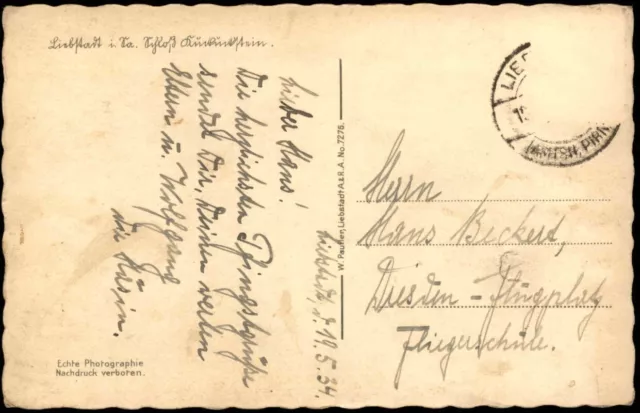 Liebstadt i. Sa. Schloß Kuckuckstein.
Liebstadt, d. 19.5.34.
Lieber Hans!
Die herzlichsten Pfingstgrüße
sendet Dir, Deinen werten
Eltern u. Wolfgang
die
W. Paul
Liebstadt A.& R. A. No. 7276.
Herrn
Hans Beckert,
Dresden - Flugplatz
Fliegerschule.
LIEB
PIRN
Echte Photographie
Nachdruck verboten.